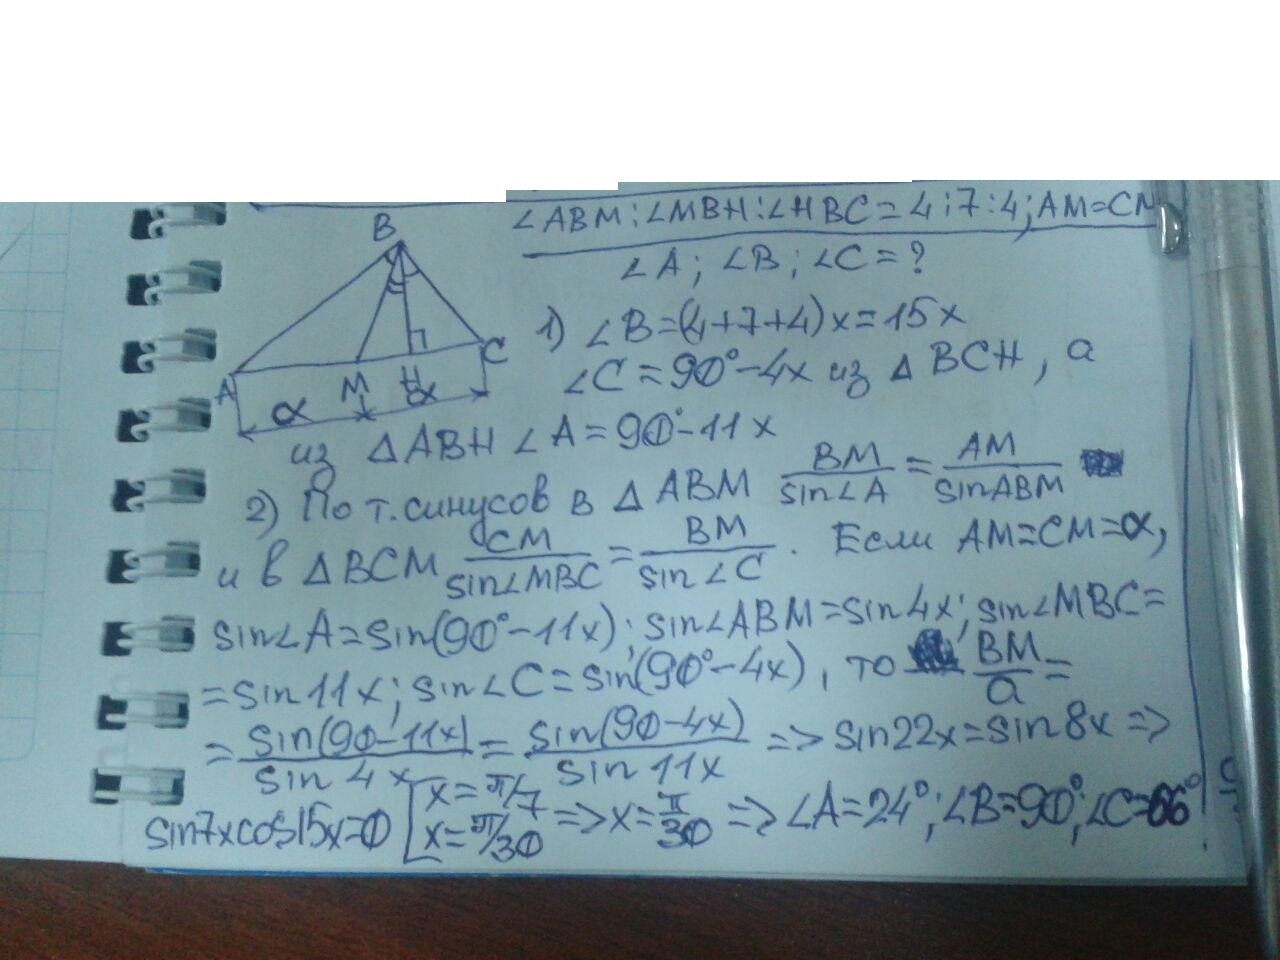 ∠ABM:∠MBH:∠HBC=4:7:4; AM=CM
∠A; ∠B; ∠C=?
B
A
M
H
C
α
α
1) ∠B=(4+7+4)x=15x
∠C=90°-4x из △BCH, а
из △ABH ∠A=90°-11x
2) По т. синусов в △ABM BM/sin∠A = AM/sinABM
и в △BCM CM/sin∠MBC = BM/sin∠C. Если AM=CM=α,
sin∠A=sin(90°-11x); sin∠ABM=sin4x; sin∠MBC=
=sin11x; sin∠C=sin(90°-4x), то BM/a=
=sin(90-11x)/sin4x = sin(90-4x)/sin11x => sin22x=sin8x =>
sin7xcos15x=0 [x=π/7 x=π/30 => x=π/30 => ∠A=24°; ∠B=90°; ∠C=66°